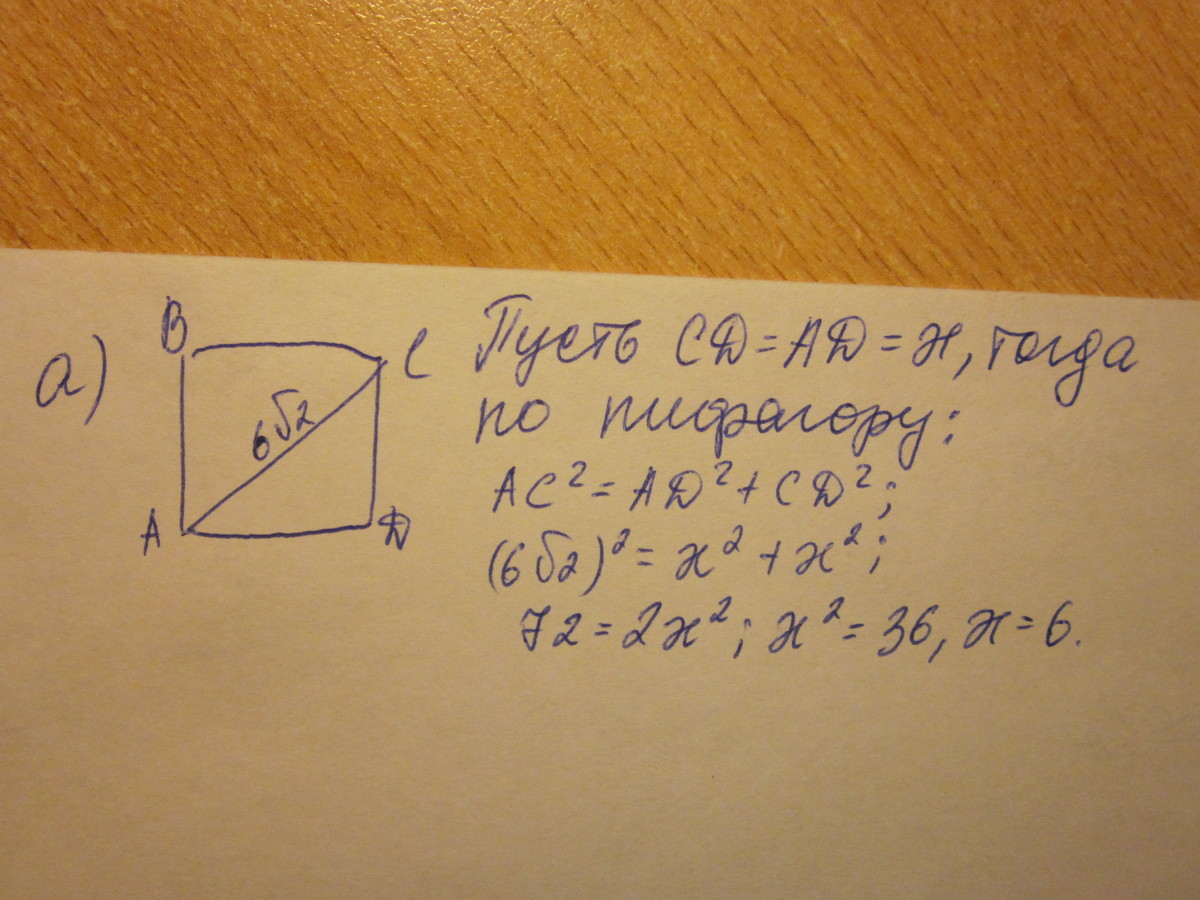 а)
B
C
6√2
A
D
Пусть CD=AD=x, тогда
по пифагору:
AC²=AD²+CD²;
(6√2)²=x²+x²;
72=2x²; x²=36, x=6.